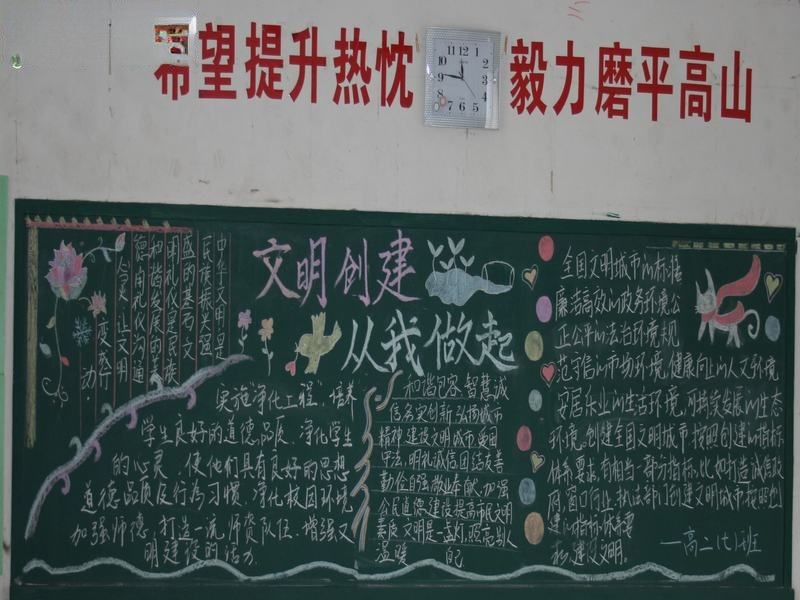 希望提升热忱 毅力磨平高山
12
1
2
3
4
5
6
7
8
9
10
11
文明创建
从我做起
中华文明是
民族振兴强
盛的基石文
明礼仪是民族
和谐发展的美
德用礼仪沟通
心灵 让文明
变为行
动.
实施净化工程.培养
学生良好的道德品质.净化学生
的心灵.使他们具有良好的思想
道德品质及行为习惯.净化校园环境
加强师德.打造一流师资队伍.增强文
明建设的活力.
和谐包容.智慧诚
信务实创新.弘扬城市
精神.建设文明城市.爱国
守法.明礼诚信.团结友善
勤俭自强.敬业奉献.加强
公民道德建设提高市民文明
素质.文明是一盏灯.照亮别人
温暖 自己
全国文明城市的标准
廉洁高效的政务环境公
正公平的法治环境规
范守信的市场环境,健康向上的人文环境
安居乐业的生活环境,可持续发展的生态
环境.创建全国文明城市.按照创建的指标
体系要求,有相当一部分指标,比如打造诚信政
府.窗口行业.执法部门创建文明城市.按照创
建的指标体系要
建设文明.
—高二(七)班